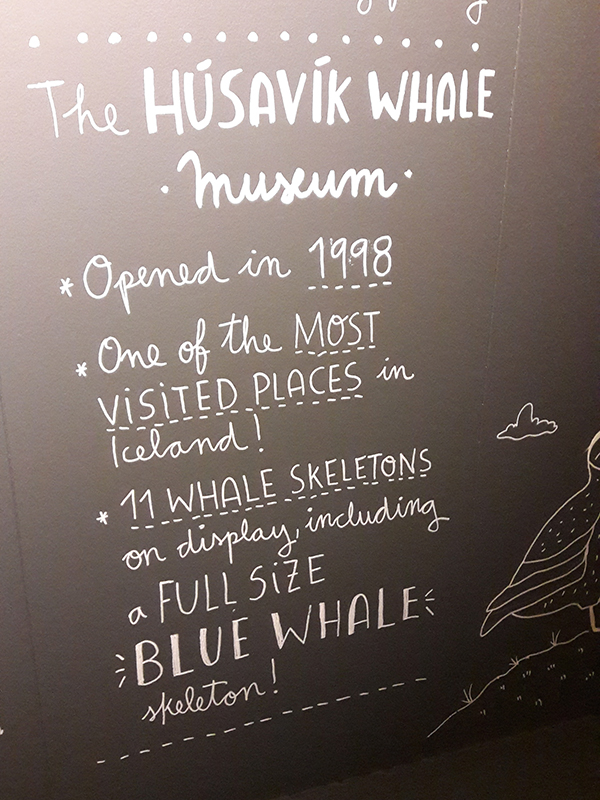 The HÚSAVÍK WHALE
· museum ·
* Opened in 1998
* One of the MOST
VISITED PLACES in
Iceland!
* 11 WHALE SKELETONS
on display, including
a FULL SIZE
BLUE WHALE
skeleton!